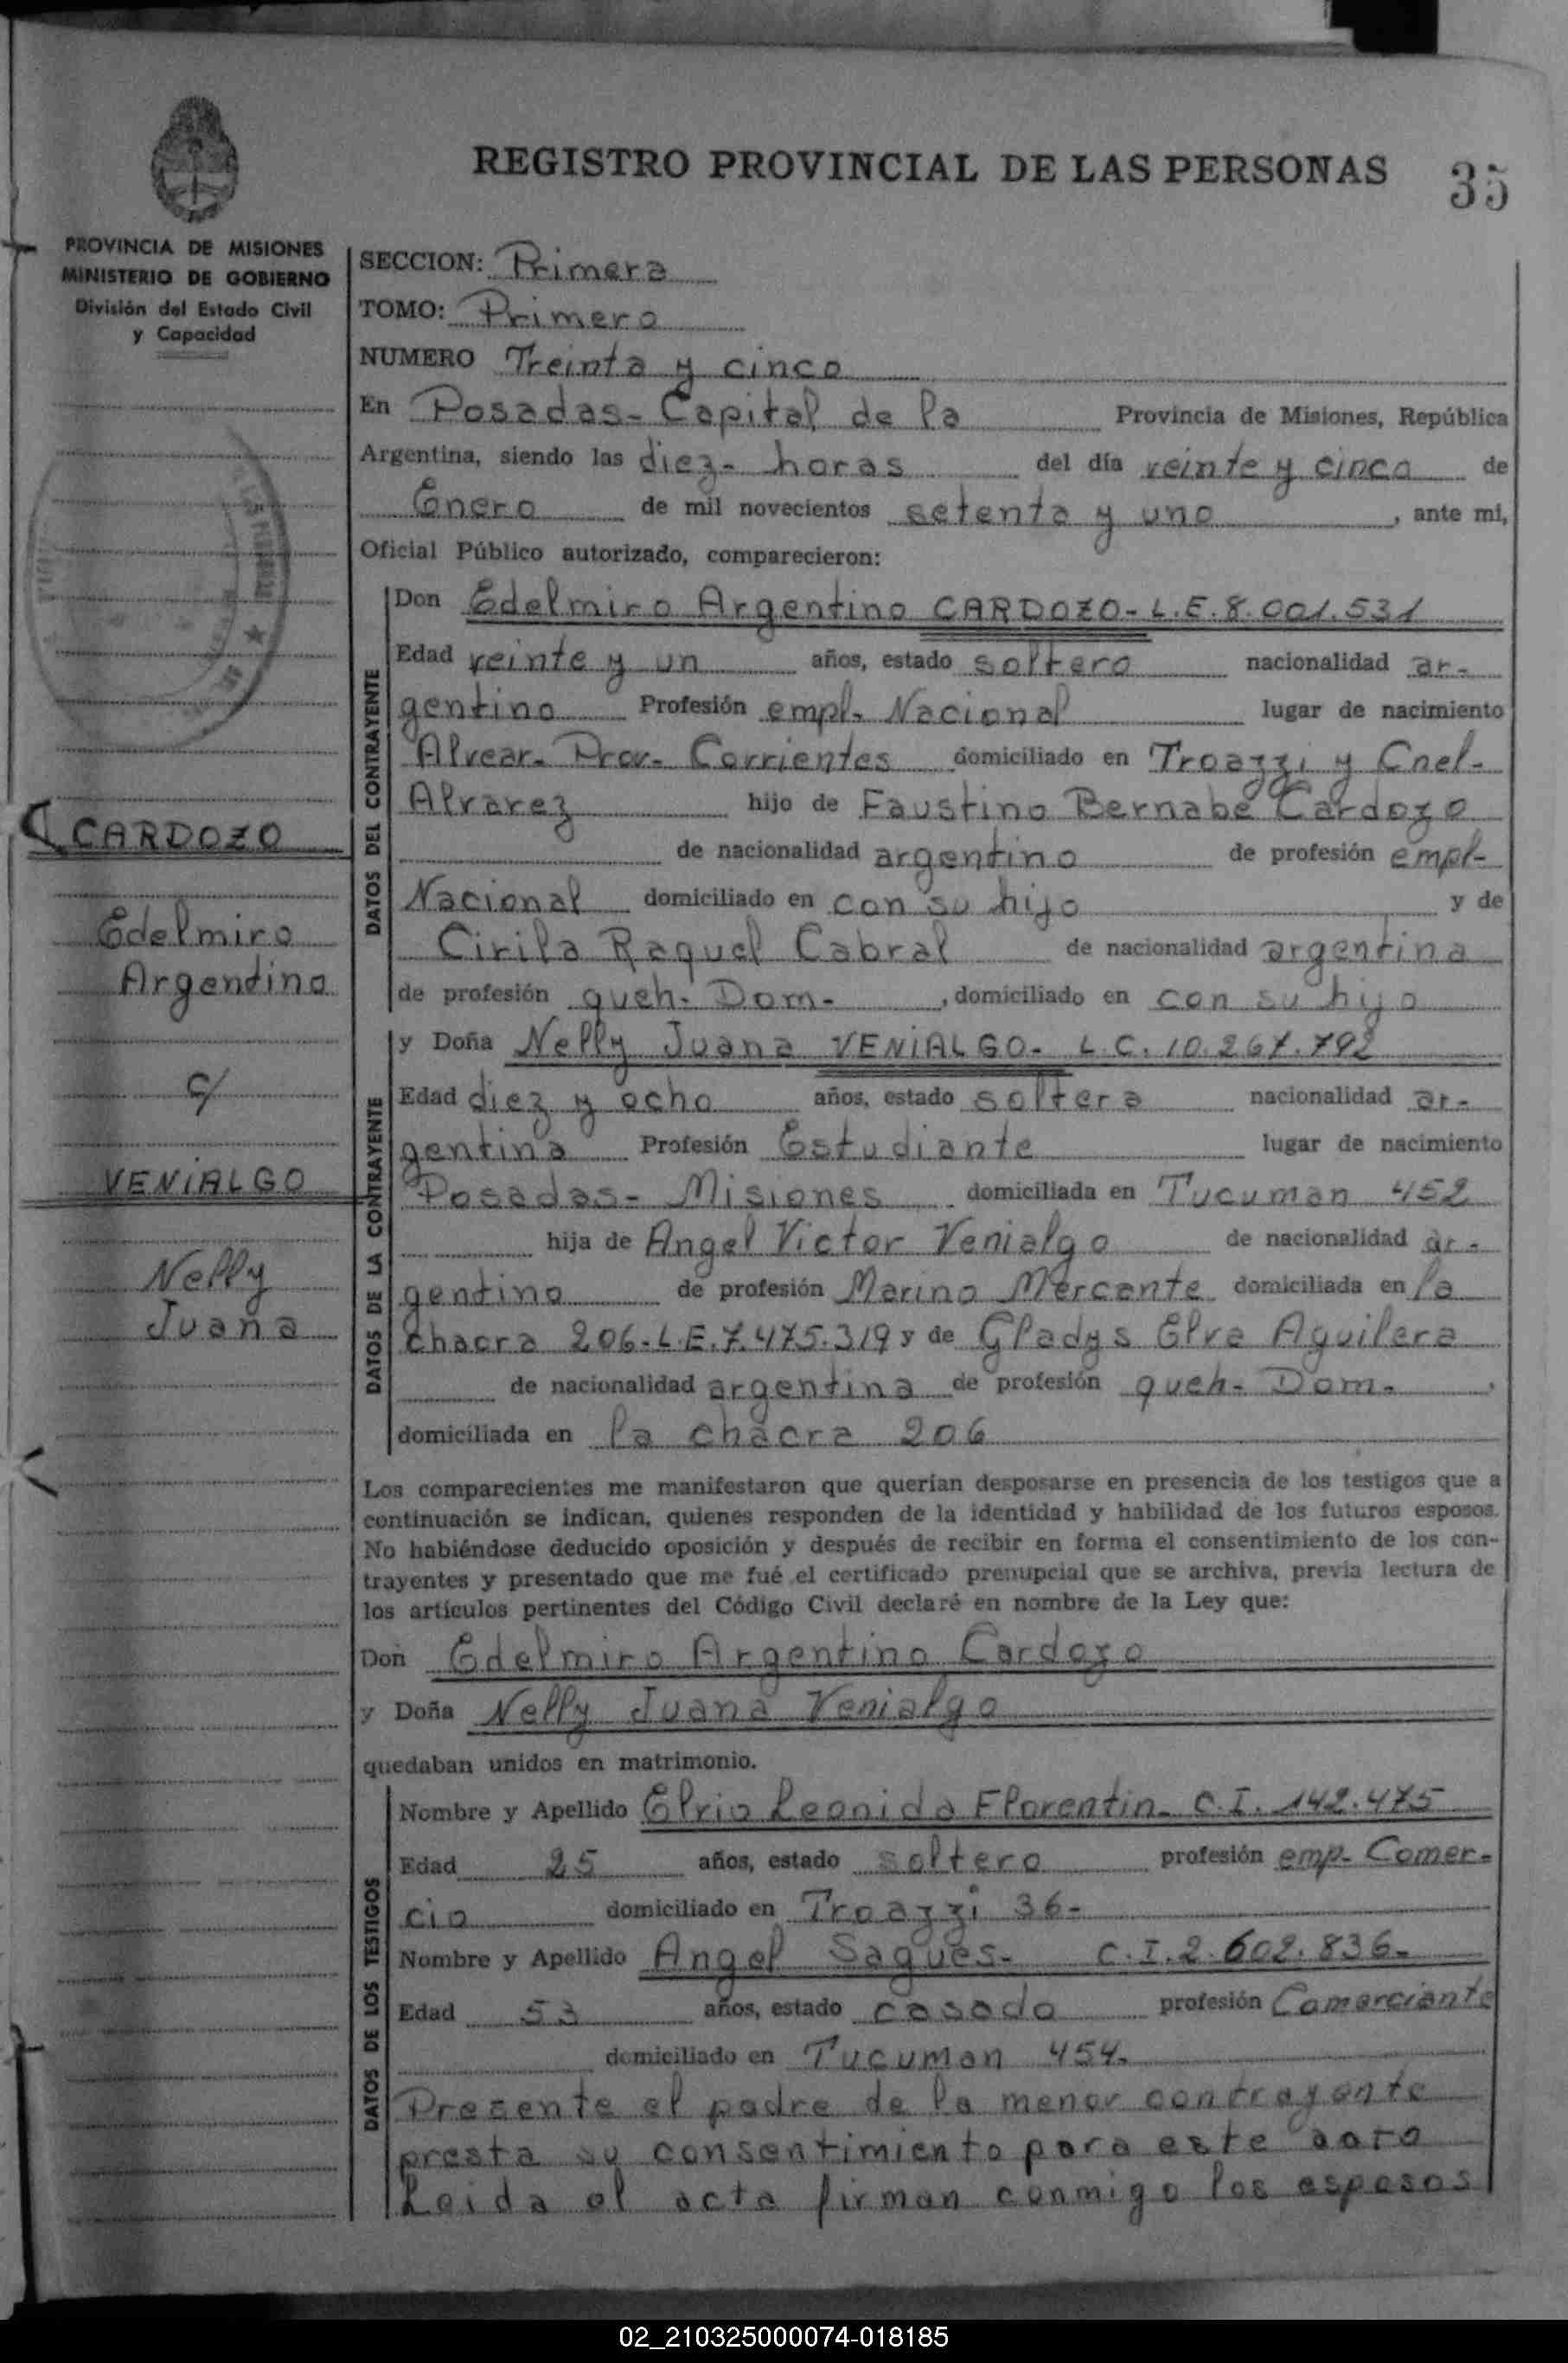 REGISTRO PROVINCIAL DE LAS PERSONAS 35
PROVINCIA DE MISIONES
MINISTERIO DE GOBIERNO
División del Estado Civil
y Capacidad
CARDOZO
Edelmiro
Argentino
c/
VENIALGO
Nelly
Juana
SECCION: Primera
TOMO: Primero
NUMERO Treinta y cinco
En Posadas- Capital de la Provincia de Misiones, República
Argentina, siendo las diez- horas del día veinte y cinco de
Enero de mil novecientos setenta y uno, ante mi,
Oficial Público autorizado, comparecieron:
DATOS DEL CONTRAYENTE
Don Edelmiro Argentino CARDOZO- L.E. 8.001.531
Edad veinte y un años, estado soltero nacionalidad ar-
gentino Profesión empl- Nacional lugar de nacimiento
Alvear- Prov- Corrientes domiciliado en Troazzi y Cnel-
Alvarez hijo de Faustino Bernabé Cardozo
de nacionalidad argentino de profesión empl-
Nacional domiciliado en con su hijo y de
Cirila Raquel Cabral de nacionalidad argentina
de profesión queh- Dom-, domiciliado en con su hijo
DATOS DE LA CONTRAYENTE
y Doña Nelly Juana VENIALGO- L.C. 10.267.792
Edad diez y ocho años, estado soltera nacionalidad ar-
gentina Profesión Estudiante lugar de nacimiento
Posadas- Misiones domiciliada en Tucuman 452
hija de Angel Victor Venialgo de nacionalidad ar-
gentino de profesión Marino Mercante domiciliada en la
chacra 206- L.E. 7.475.319 y de Gladys Elva Aguilera
de nacionalidad argentina de profesión queh- Dom-,
domiciliada en la chacra 206
Los comparecientes me manifestaron que querían desposarse en presencia de los testigos que a
continuación se indican, quienes responden de la identidad y habilidad de los futuros esposos.
No habiéndose deducido oposición y después de recibir en forma el consentimiento de los con-
trayentes y presentado que me fué el certificado prenupcial que se archiva, previa lectura de
los artículos pertinentes del Código Civil declaré en nombre de la Ley que:
Don Edelmiro Argentino Cardozo
y Doña Nelly Juana Venialgo
quedaban unidos en matrimonio.
DATOS DE LOS TESTIGOS
Nombre y Apellido Elvio Leonido Florentin- C.I. 142.475
Edad 25 años, estado soltero profesión emp- Comer-
cio domiciliado en Troazzi 36-
Nombre y Apellido Angel Sagues- C.I. 2.602.836-
Edad 53 años, estado casado profesión Comerciante
domiciliado en Tucuman 454-
Presente el padre de la menor contrayente
presta su consentimiento para este acto
Leida el acta firman conmigo los esposos
02_210325000074-018185